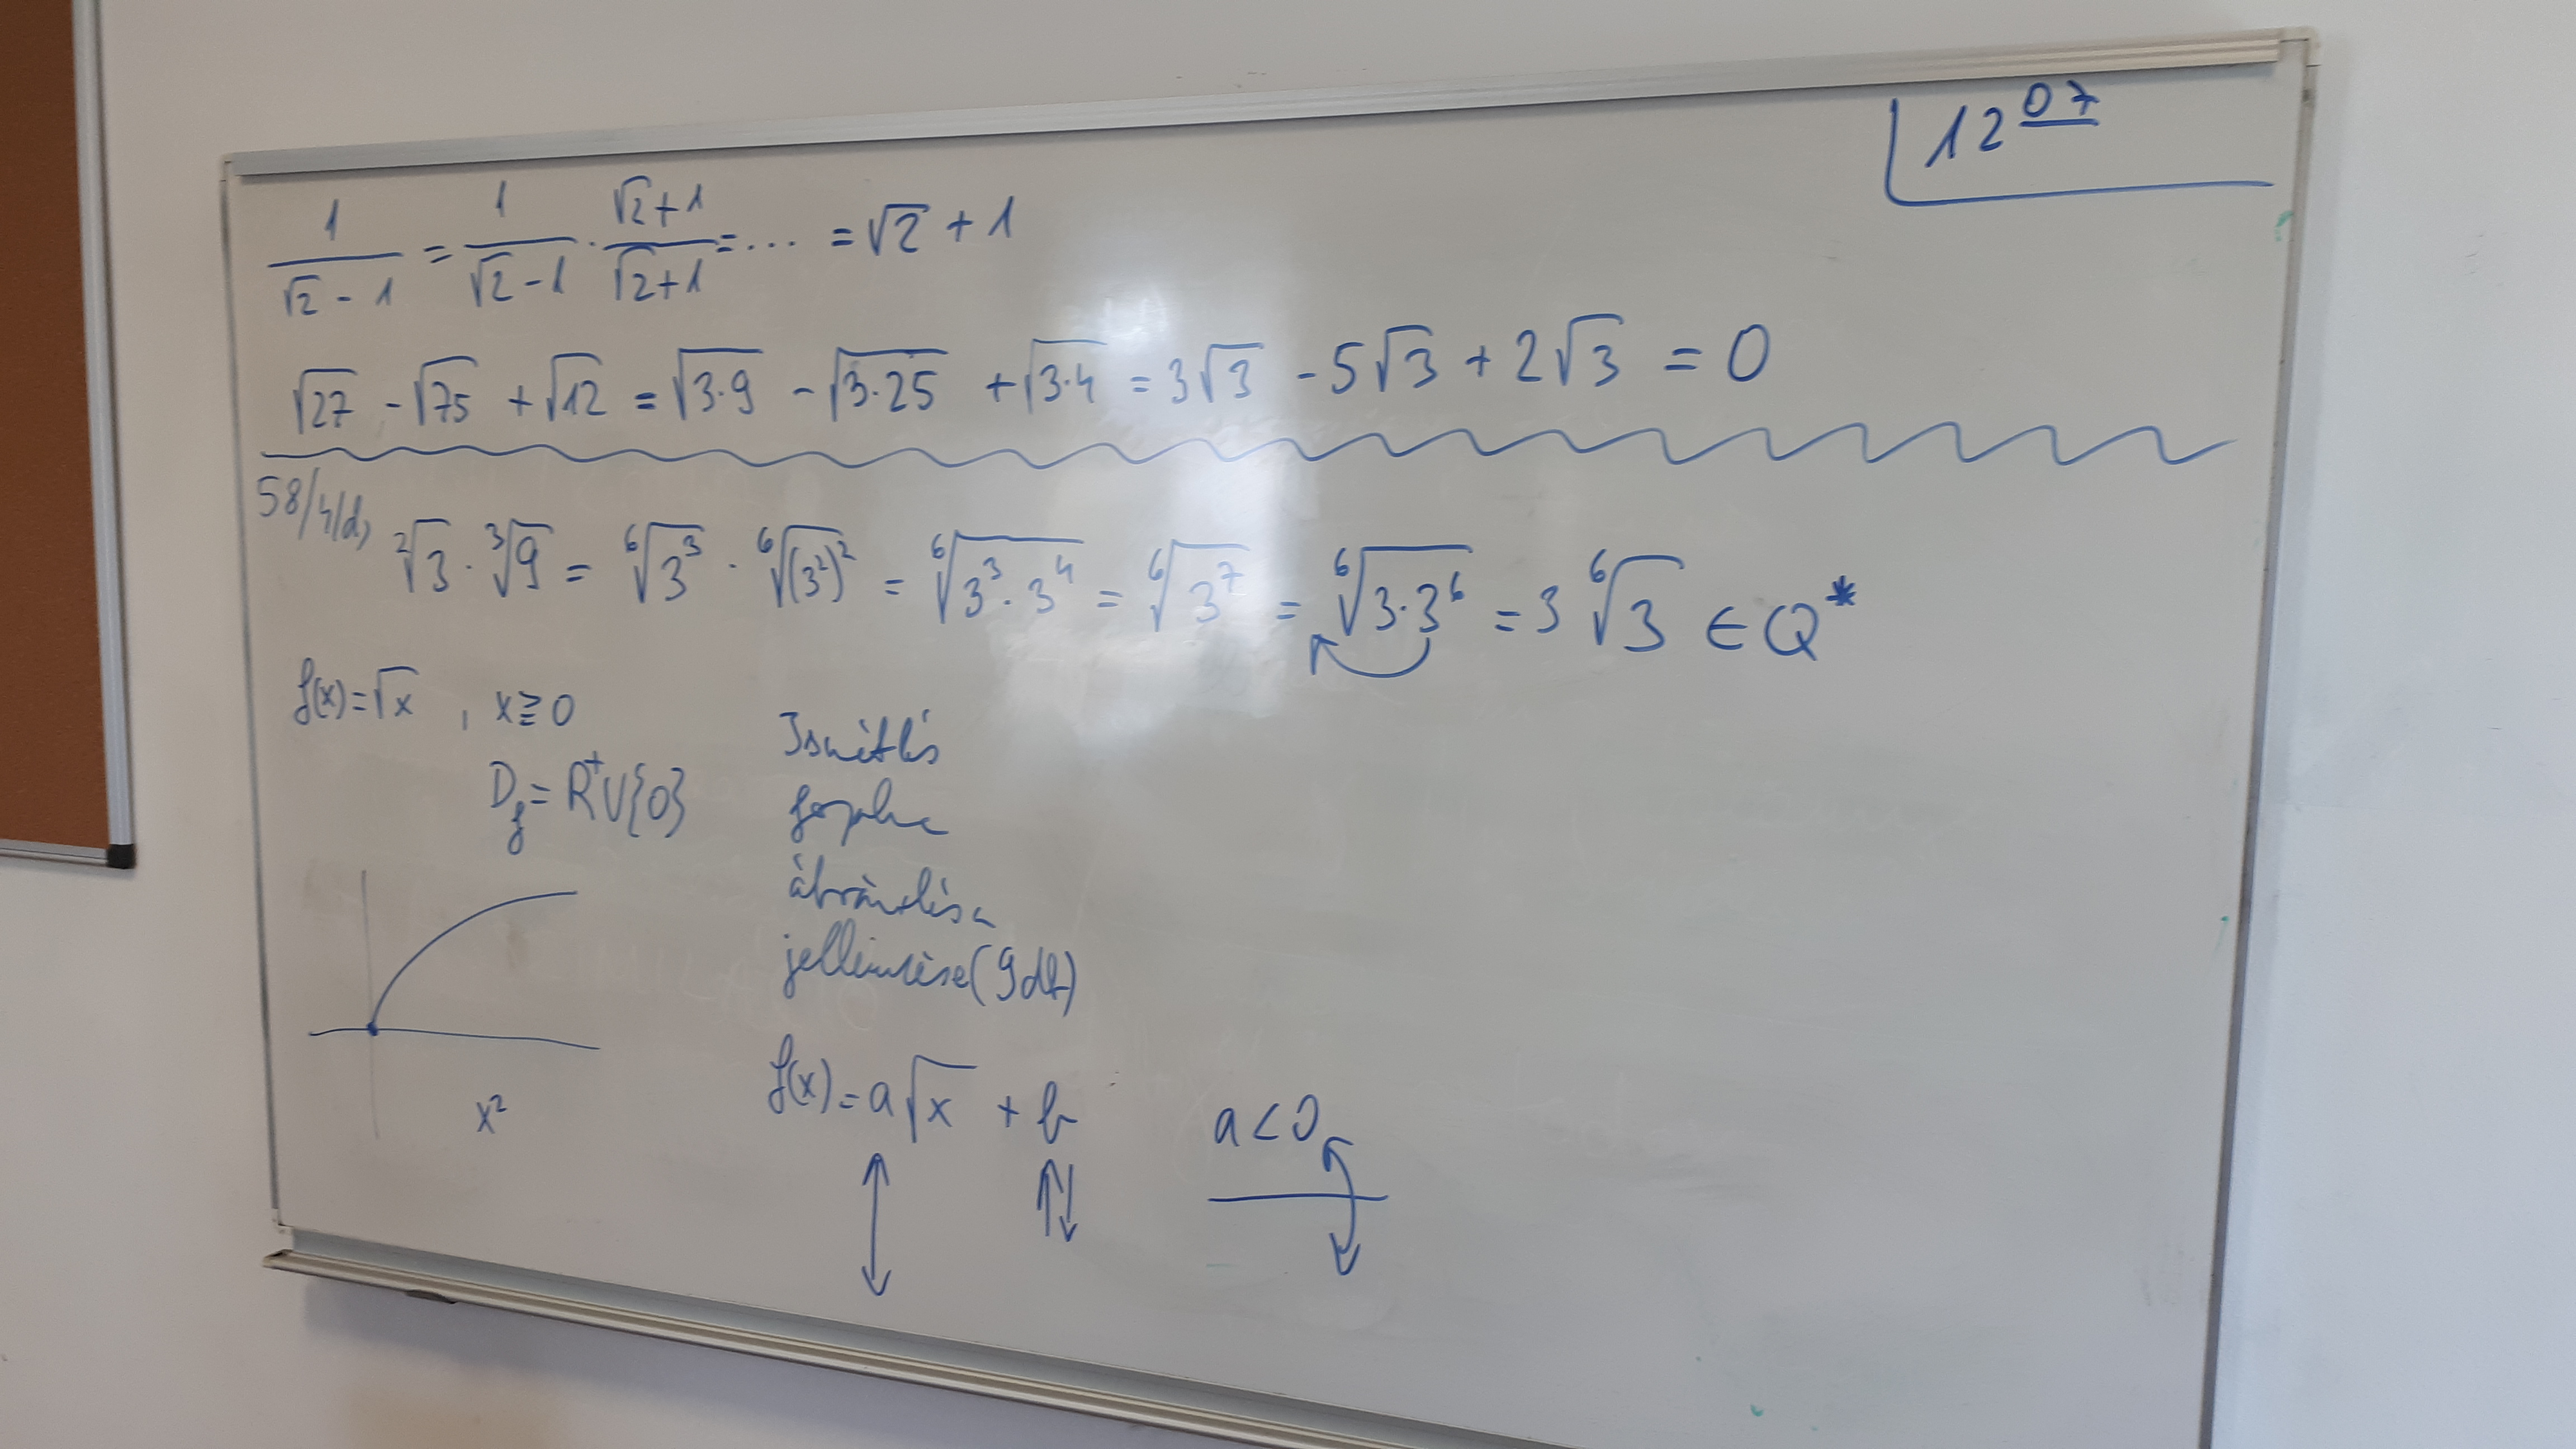 12 07
1/(√2 - 1) = 1/(√2 - 1) · (√2 + 1)/(√2 + 1) = ... = √2 + 1
√27 - √75 + √12 = √3·9 - √3·25 + √3·4 = 3√3 - 5√3 + 2√3 = 0
58/4/d,
²√3 · ³√9 = ⁶√3³ · ⁶√(3²)² = ⁶√3³·3⁴ = ⁶√3⁷ = ⁶√3·3⁶ = 3 ⁶√3 ∈ Q*
f(x) = √x , x ≧ 0
D_f = R⁺∪{0}
x²
Ismétlés
ábrázolása
jellemzése (
f(x) = a√x + b
a < 0